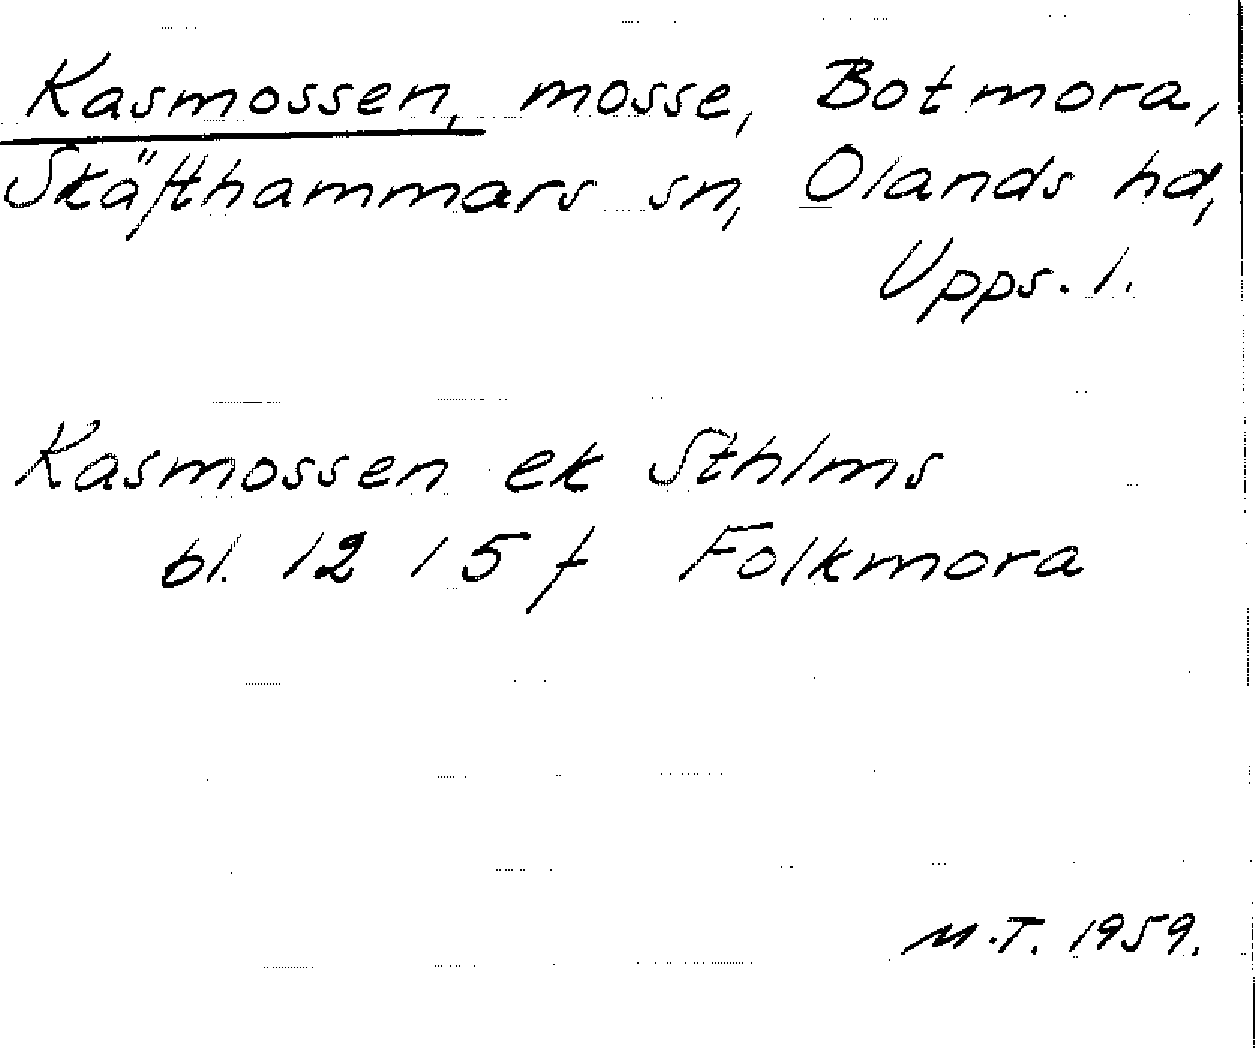 Kasmossen, mosse, Botmora,
Skäfthammars sn, Olands hd,
Upps. l.
Kasmossen ek Sthlms
bl. 12 I 5 f Folkmora
M.T. 1959.